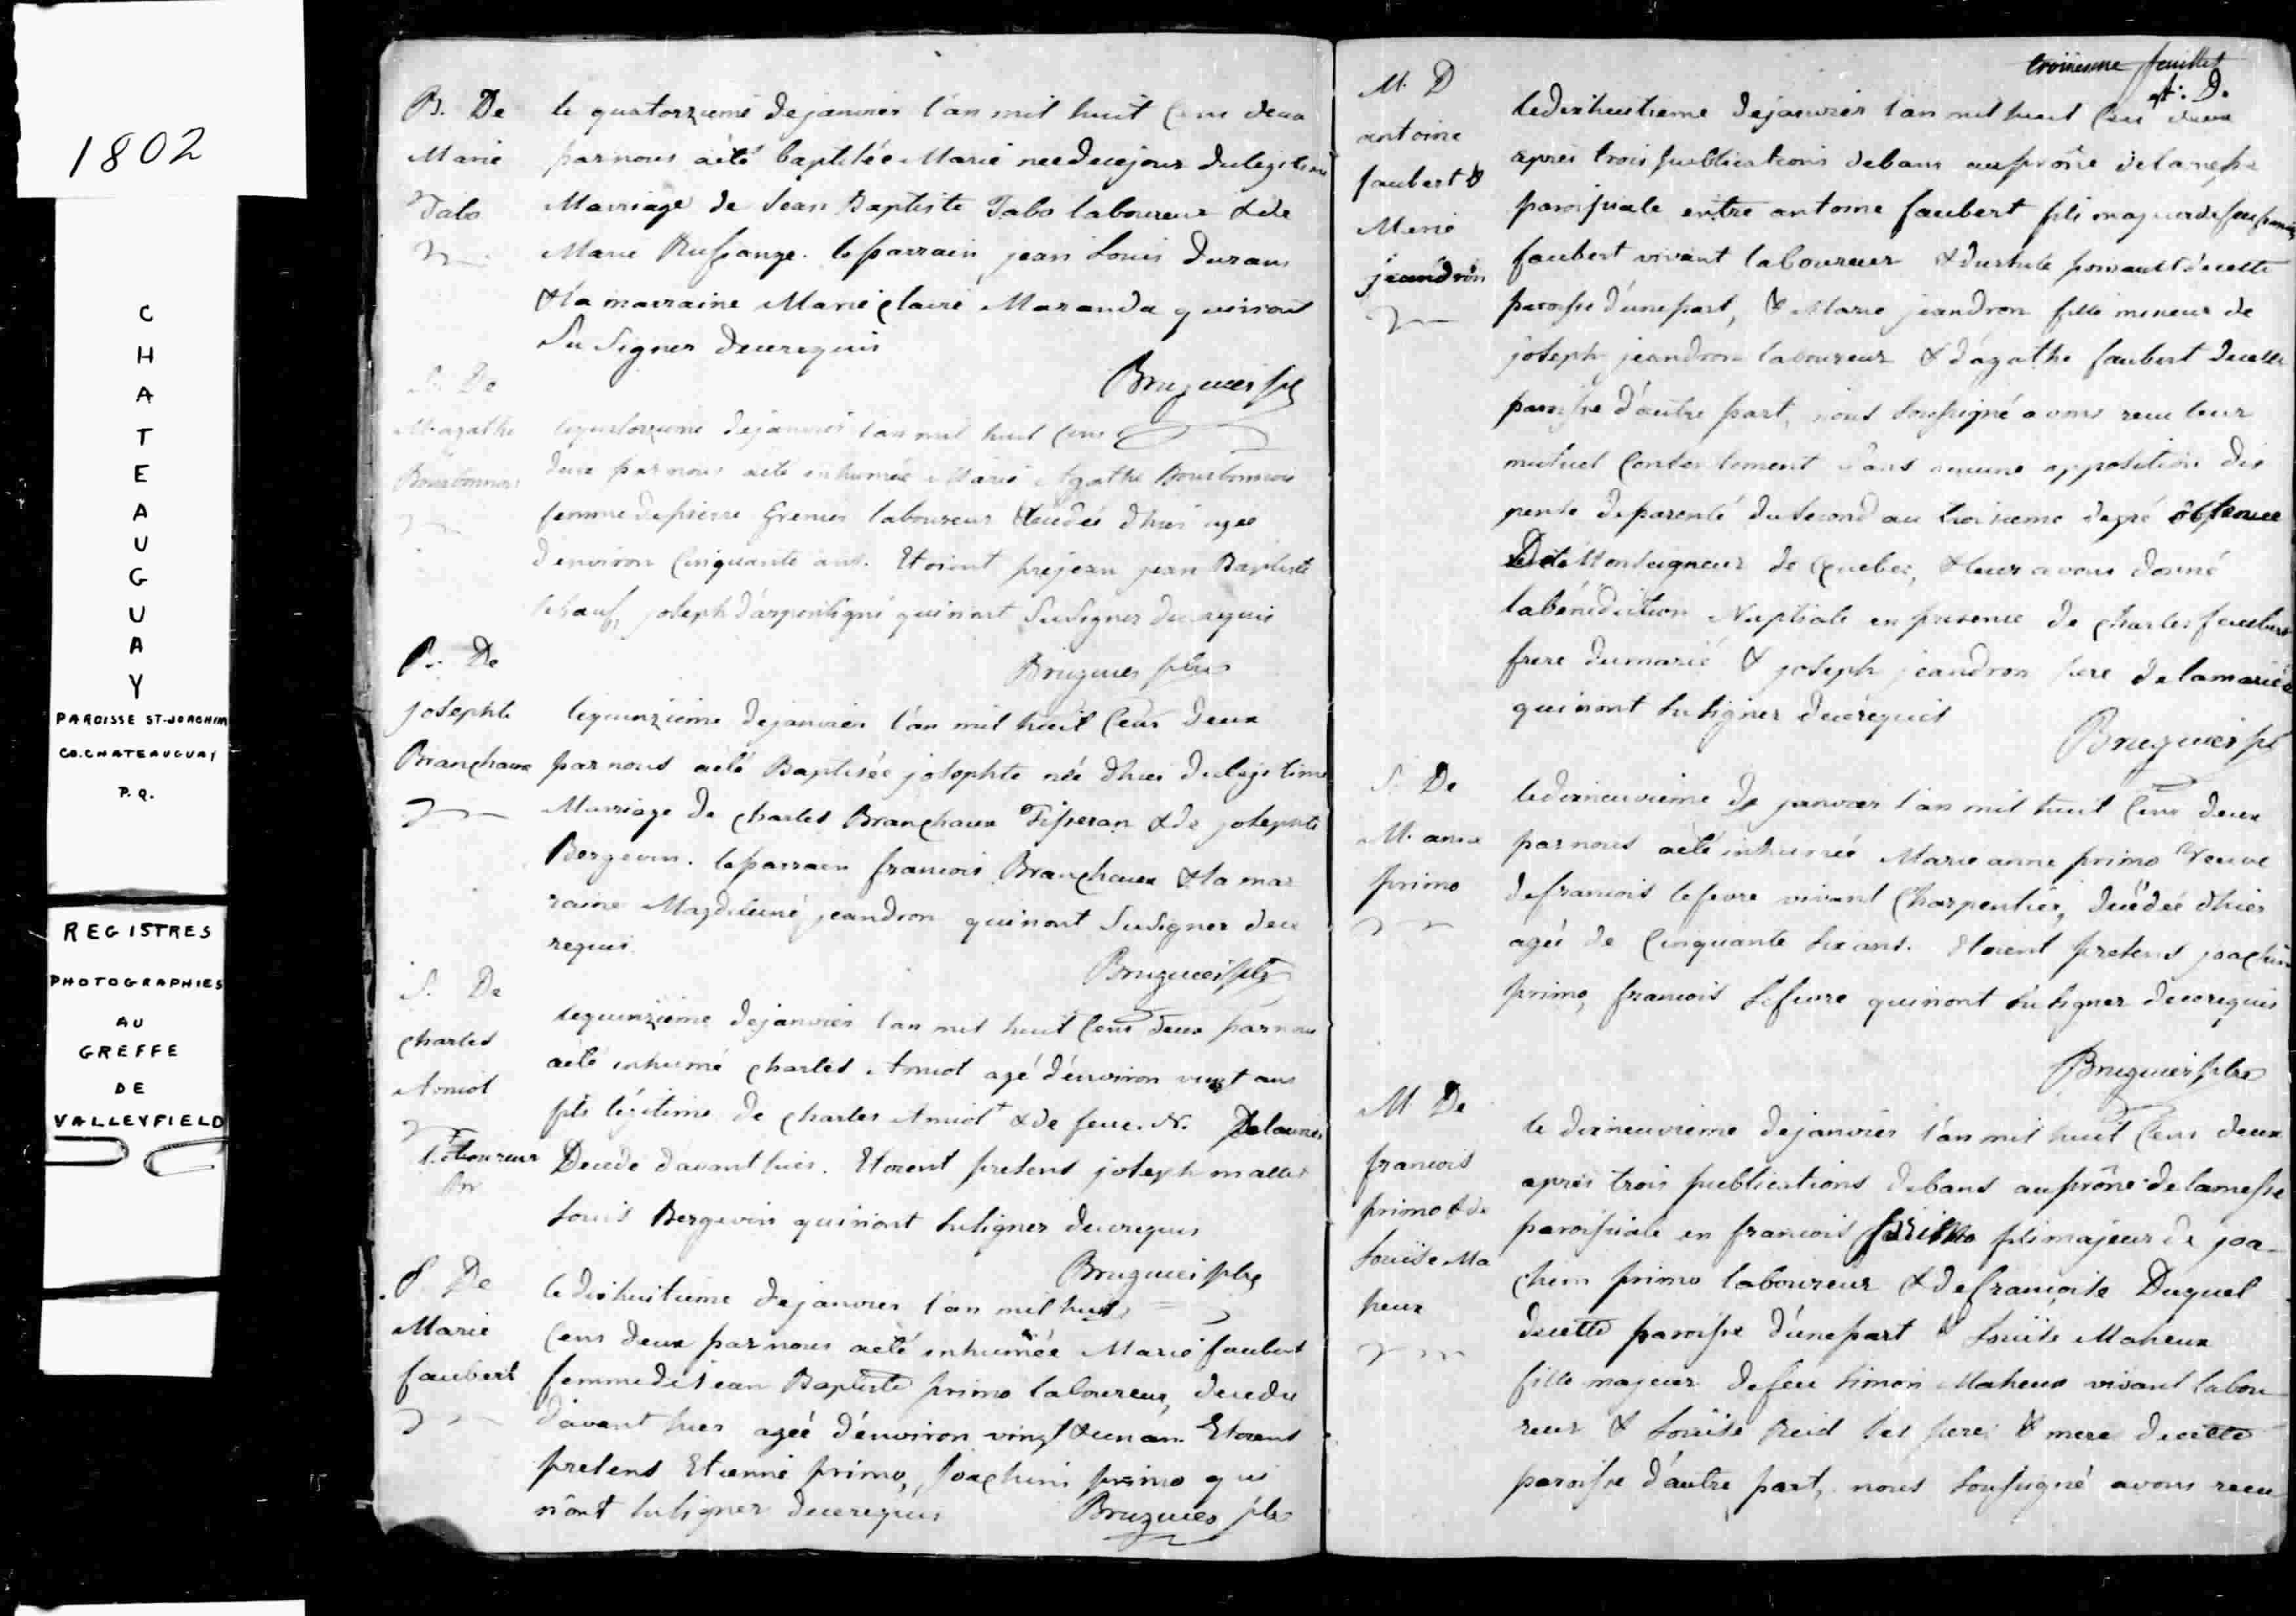 1802
C
H
A
T
E
A
U
G
U
A
Y
PAROISSE ST-JOACHIM
CO. CHATEAUGUAY
P.Q.
REGISTRES
PHOTOGRAPHIES
AU
GREFFE
DE
VALLEYFIELD
B. De
Marie
Tabo
le quatorzieme dejanvier l'an mil huit Cens deux
parnous aété baptisée Marie néedecejour dulegitime
Marriage de Jean Baptiste Tabo laboureur &de
Marie leparrain jean Louis
&la marraine Marie Claire Maranda quinont
Su Signer decerequis
Bruguier ptre
S. De
M. agathe
Bourbonnois
lequatorzieme dejanvier l'an mil huit Cens
deux parnous aeté inhumée Marie Agathe Bourbonnois
femme depierre Grenier laboureur décédée d'hier agée
d'environ Cinquante ans. Etoient présens jean Baptiste
joseph quinont SuSigner de requis
Bruguier ptre
B. De
josephte
Branchaux
lequinzieme dejanvier l'an mil huit Cens deux
parnous aété Baptisée josephte née d'hier dulegitime
Marriage de Charles Branchaux Tisseran &de josephte
Bergevin. leparrain francois Branchaux &la mar
raine Magdeleine jeandron quinont SuSigner dece
requis.
Bruguier ptre
S. De
Charles
Amiot
laboureur
Br
lequinzieme dejanvier l'an mil huit Cens deux parnous
aété inhumé Charles Amiot agé d'environ vingt ans
fils légitime de Charles Amiot &de feue. N. Delaunier
Decedé davant hier. Etoient presens joseph mallet
Louis Bergevin quinont suSigner decerequis
Bruguier ptre
S. De
Marie
faubert
ledixhuitieme dejanvier l'an mil huit
Cens deux parnous aété inhumée Marie faubert
femmede jean Baptiste primo laboureur, decedée
davant hier agée d'environ vingt &un an. Etoient
presens Etienne primo, Joachim primo qui
n'ont suSigner decerequis
Bruguier ptre
troisieme feuillet
pt. D.
M. D
antoine
faubert &
Marie
jeandron
ledixhuitieme dejanvier l'an mil huit Cens deux
après trois publications debans auprône delamesse
paroissiale entre antoine faubert fils majeur defeu
faubert vivant laboureur & decette
paroisse d'une part, & Marie jeandron fille mineur de
joseph jeandron laboureur & d'agathe faubert decette
paroisse d'autre part, nous Soussigné avons recu leur
mutuel Consentement Sans aucune opposition dis
pense deparenté duSecond au troisieme degré obtenue
De Monseigneur de Quebec, &leur avons donné
labénédiction Nuptiale en presence de Charles faubert
frere dumarié & joseph jeandron pere delamariée
quinont suSigner decerequis
Bruguier pt
S. De
M. anne
primo
ledixneuvieme de janvier l'an mil huit Cens deux
parnous aété inhumée Marie anne primo Veuve
defrancois lefevre vivant Charpentier, decedée d'hier
agée de Cinquante Six ans. Etoient presens joachim
primo, francois Lefevre quinont suSigner decerequis
Bruguier ptre
M. De
francois
primo &de
Louise Ma
heux
le dixneuvieme dejanvier l'an mil huit Cens deux
après trois publications debans auprône delamesse
paroissiale en francois primo fils majeur de joa
chim primo laboureur &defrancoise Duquet
decette paroisse d'une part & Louise Maheux
fille majeur defeu Simon Maheux vivant labou
reur & Louise Reid Ses pere & mere decette
paroisse d'autre part, nous Soussigné avons recu